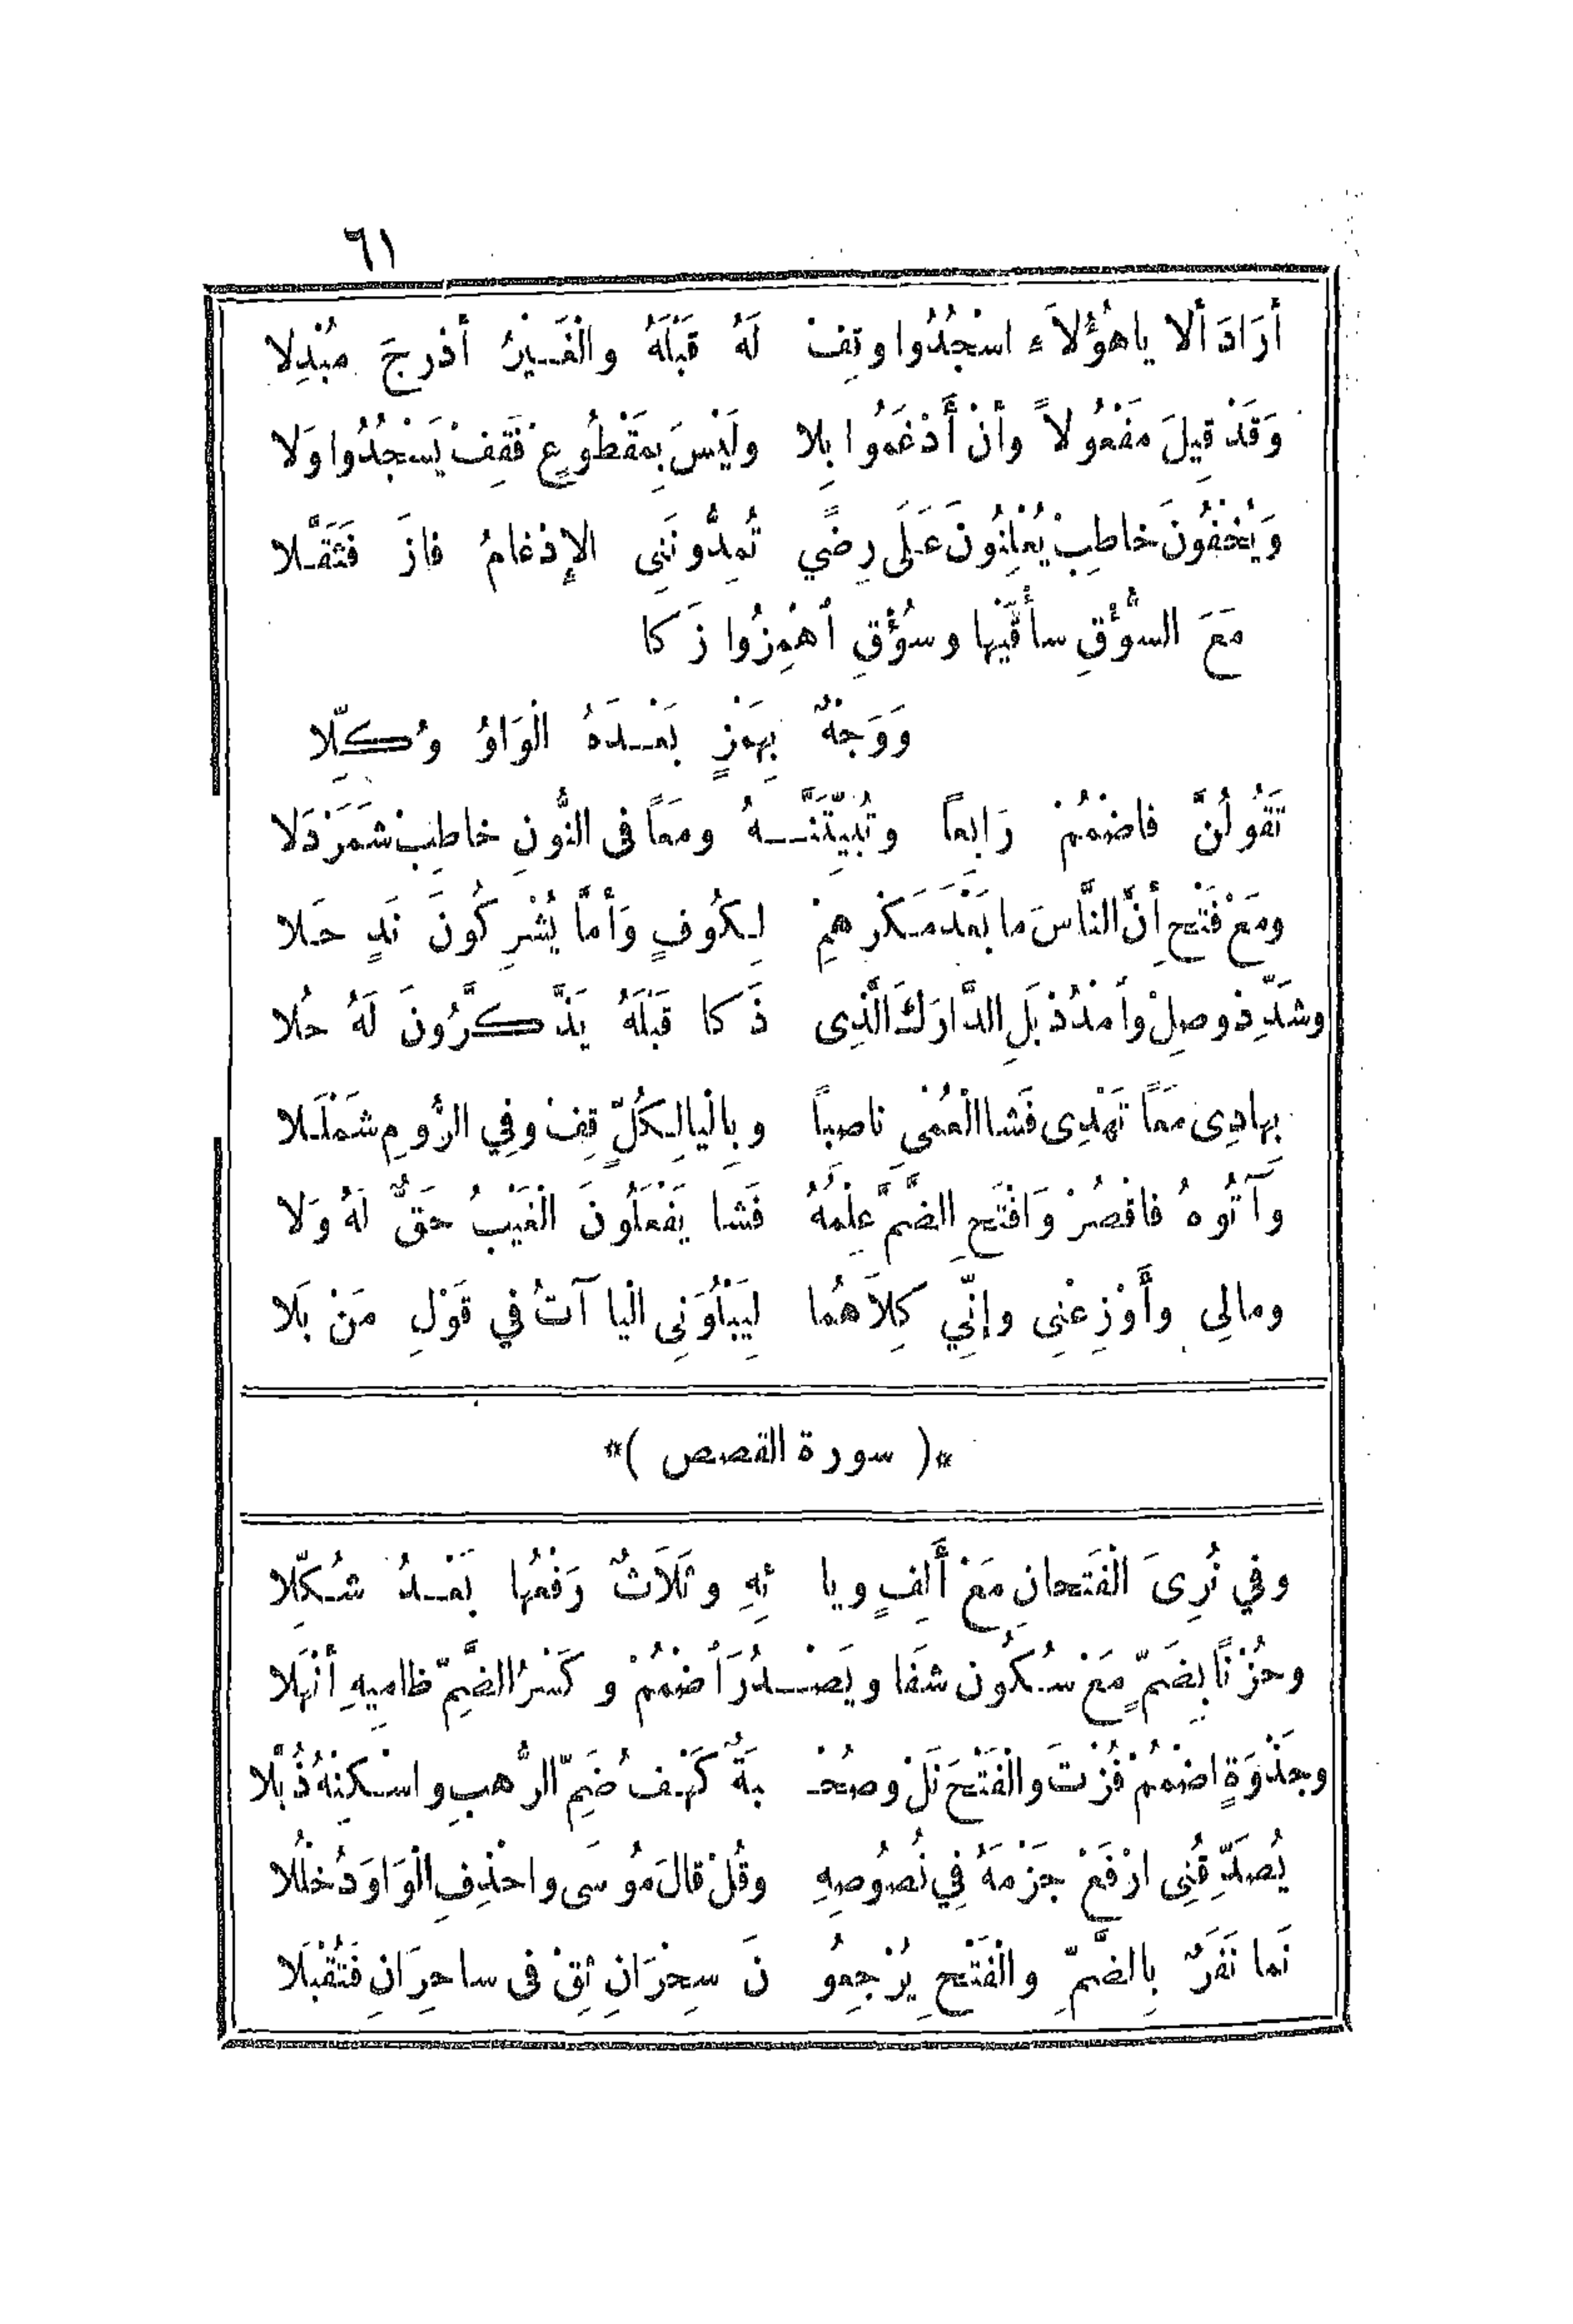 ٦١
أَرَادَ أَلا ياهٰؤُلاَءِ اسْجُدُوا وقِفْ لَهُ قَبْلَهُ والْغَيْرُ أَدْرجَ مُبْدِلا
وَقَدْ قِيلَ مَفْعُولاً وأَنْ أَدْغَمُوا بِلا ولَيْسَ بِمَقْطُوعٍ فَقِفْ يَسْجُدُوا وَلا
وَيُخْفُونَ خاطِبْ يُعْلِنُونَ عَلَى رِضًي تُمِدُّونَنِى الإِدْغامُ فازَ فَثَقَّلا
مَعَ السُّؤْقِ سأْقَيْها وسُؤْقِ أهْمِزُوا زَكا
وَوَجْهٌ بِهَمْزٍ بَعْدَهُ الْوَاوُ وُكِّلا
تَقُولُنَّ فاضْمُمْ رَابِعاً وتُبَيِّتَنَّهُ ومَعاً فى النُّونِ خاطِبْ شَمَرْدَلا
ومَعْ فَتْحِ أَنَّ النَّاسَ ما بَعْدَ مَكْرِهِمْ لِكُوفٍ وَأَمَّا يُشْرِكُونَ نَدٍ حَلا
وشَدِّدْ وصِلْ وأمْدُدْ بَلِ الدَّارَكَ الَّذِى ذَكا قَبْلَهُ يَذَّكَّرُونَ لَهُ حُلا
بِهادِى مَعًا تَهْدِى فَشا الْعُمْىِ ناصِباً وبِالْيا لِكُلٍّ قِفْ وفِي الرُّومِ شَمْلَلا
وآتُوهُ فاقْصُرْ وَافْتَحِ الضَّمَّ عِلْمُهُ فَشا يَفْعَلُونَ الْغَيْبُ حَقٌّ لَهُ وَلا
ومالِى وأَوْزِعْنِى وإِنِّي كِلاَهُما لِيَبْلُوَنِى الْيا آتُ في قَوْلِ مَنْ بَلا
*( سورة القصص )*
وفي نُرِىَ الْفَتْحانِ مَعْ أَلِفٍ ويا ئِهِ وثَلاَثٌ رَفْعُها بَعْدُ شُكِّلا
وحُزْنًا بِضَمٍّ مَعْ سُكُونٍ شَفَا ويَصْدُرَ أضْمُمْ وكَسْرُ الضَّمِّ ظامِيهِ أَنْهَلا
وجَذْوَةٍ اضْمُمْ فُزْتَ والْفَتْحَ نَلْ وصُحْـ بَةٌ كَهْفُ ضَمِّ الرُّهْبِ واسْكِنْهُ ذُبَّلا
يُصَدِّقُنِى ارْفَعْ جَزْمَهُ فِي نُصُوصِهِ وقُلْ قالَ مُوسَى واحْذِفِ الْوَاوَ دُخْلُلا
نَما نَفَرٌ بِالضَّمِّ والْفَتْحِ يُرْجِعُو نَ سِحْرَانِ ثِقْ فى ساحِرَانِ فَتُقْبَلا